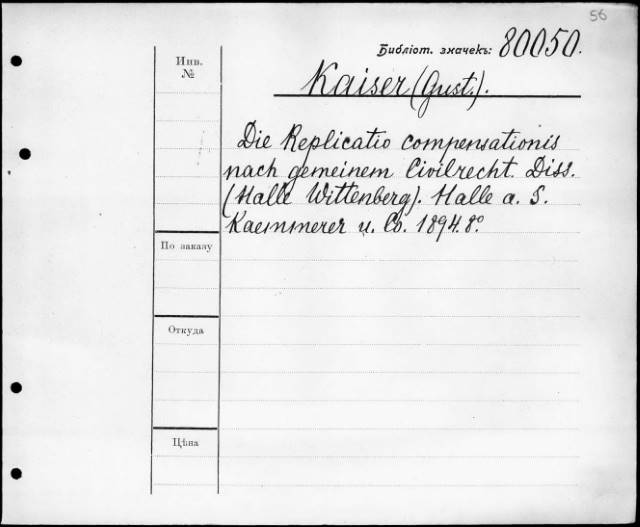 56
Библіот. значекъ: 80050.
Инв.
№
Kaiser (Gust.).
Die Replicatio compensationis
nach gemeinem Civilrecht. Diss.
(Halle Wittenberg). Halle a. S.
Kaemmerer u. Co. 1894. 8º.
По заказу
Откуда
Цѣна